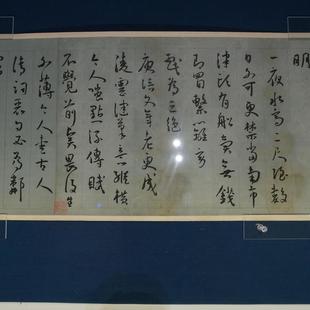 明
一夜水高二尺強數
日不可更禁當南市
津頭有船賣無錢
即買繫籬旁
戲為三絕
庾信文章老更成
凌雲健筆意縱橫
今人嗤點流傳賦
不覺前賢畏後生
不薄今人愛古人
清詞麗句必為鄰